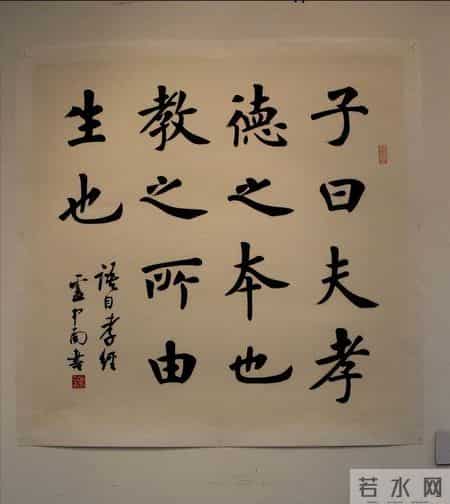 子曰夫孝
德之本也
教之所由
生也
語自孝經
若水网